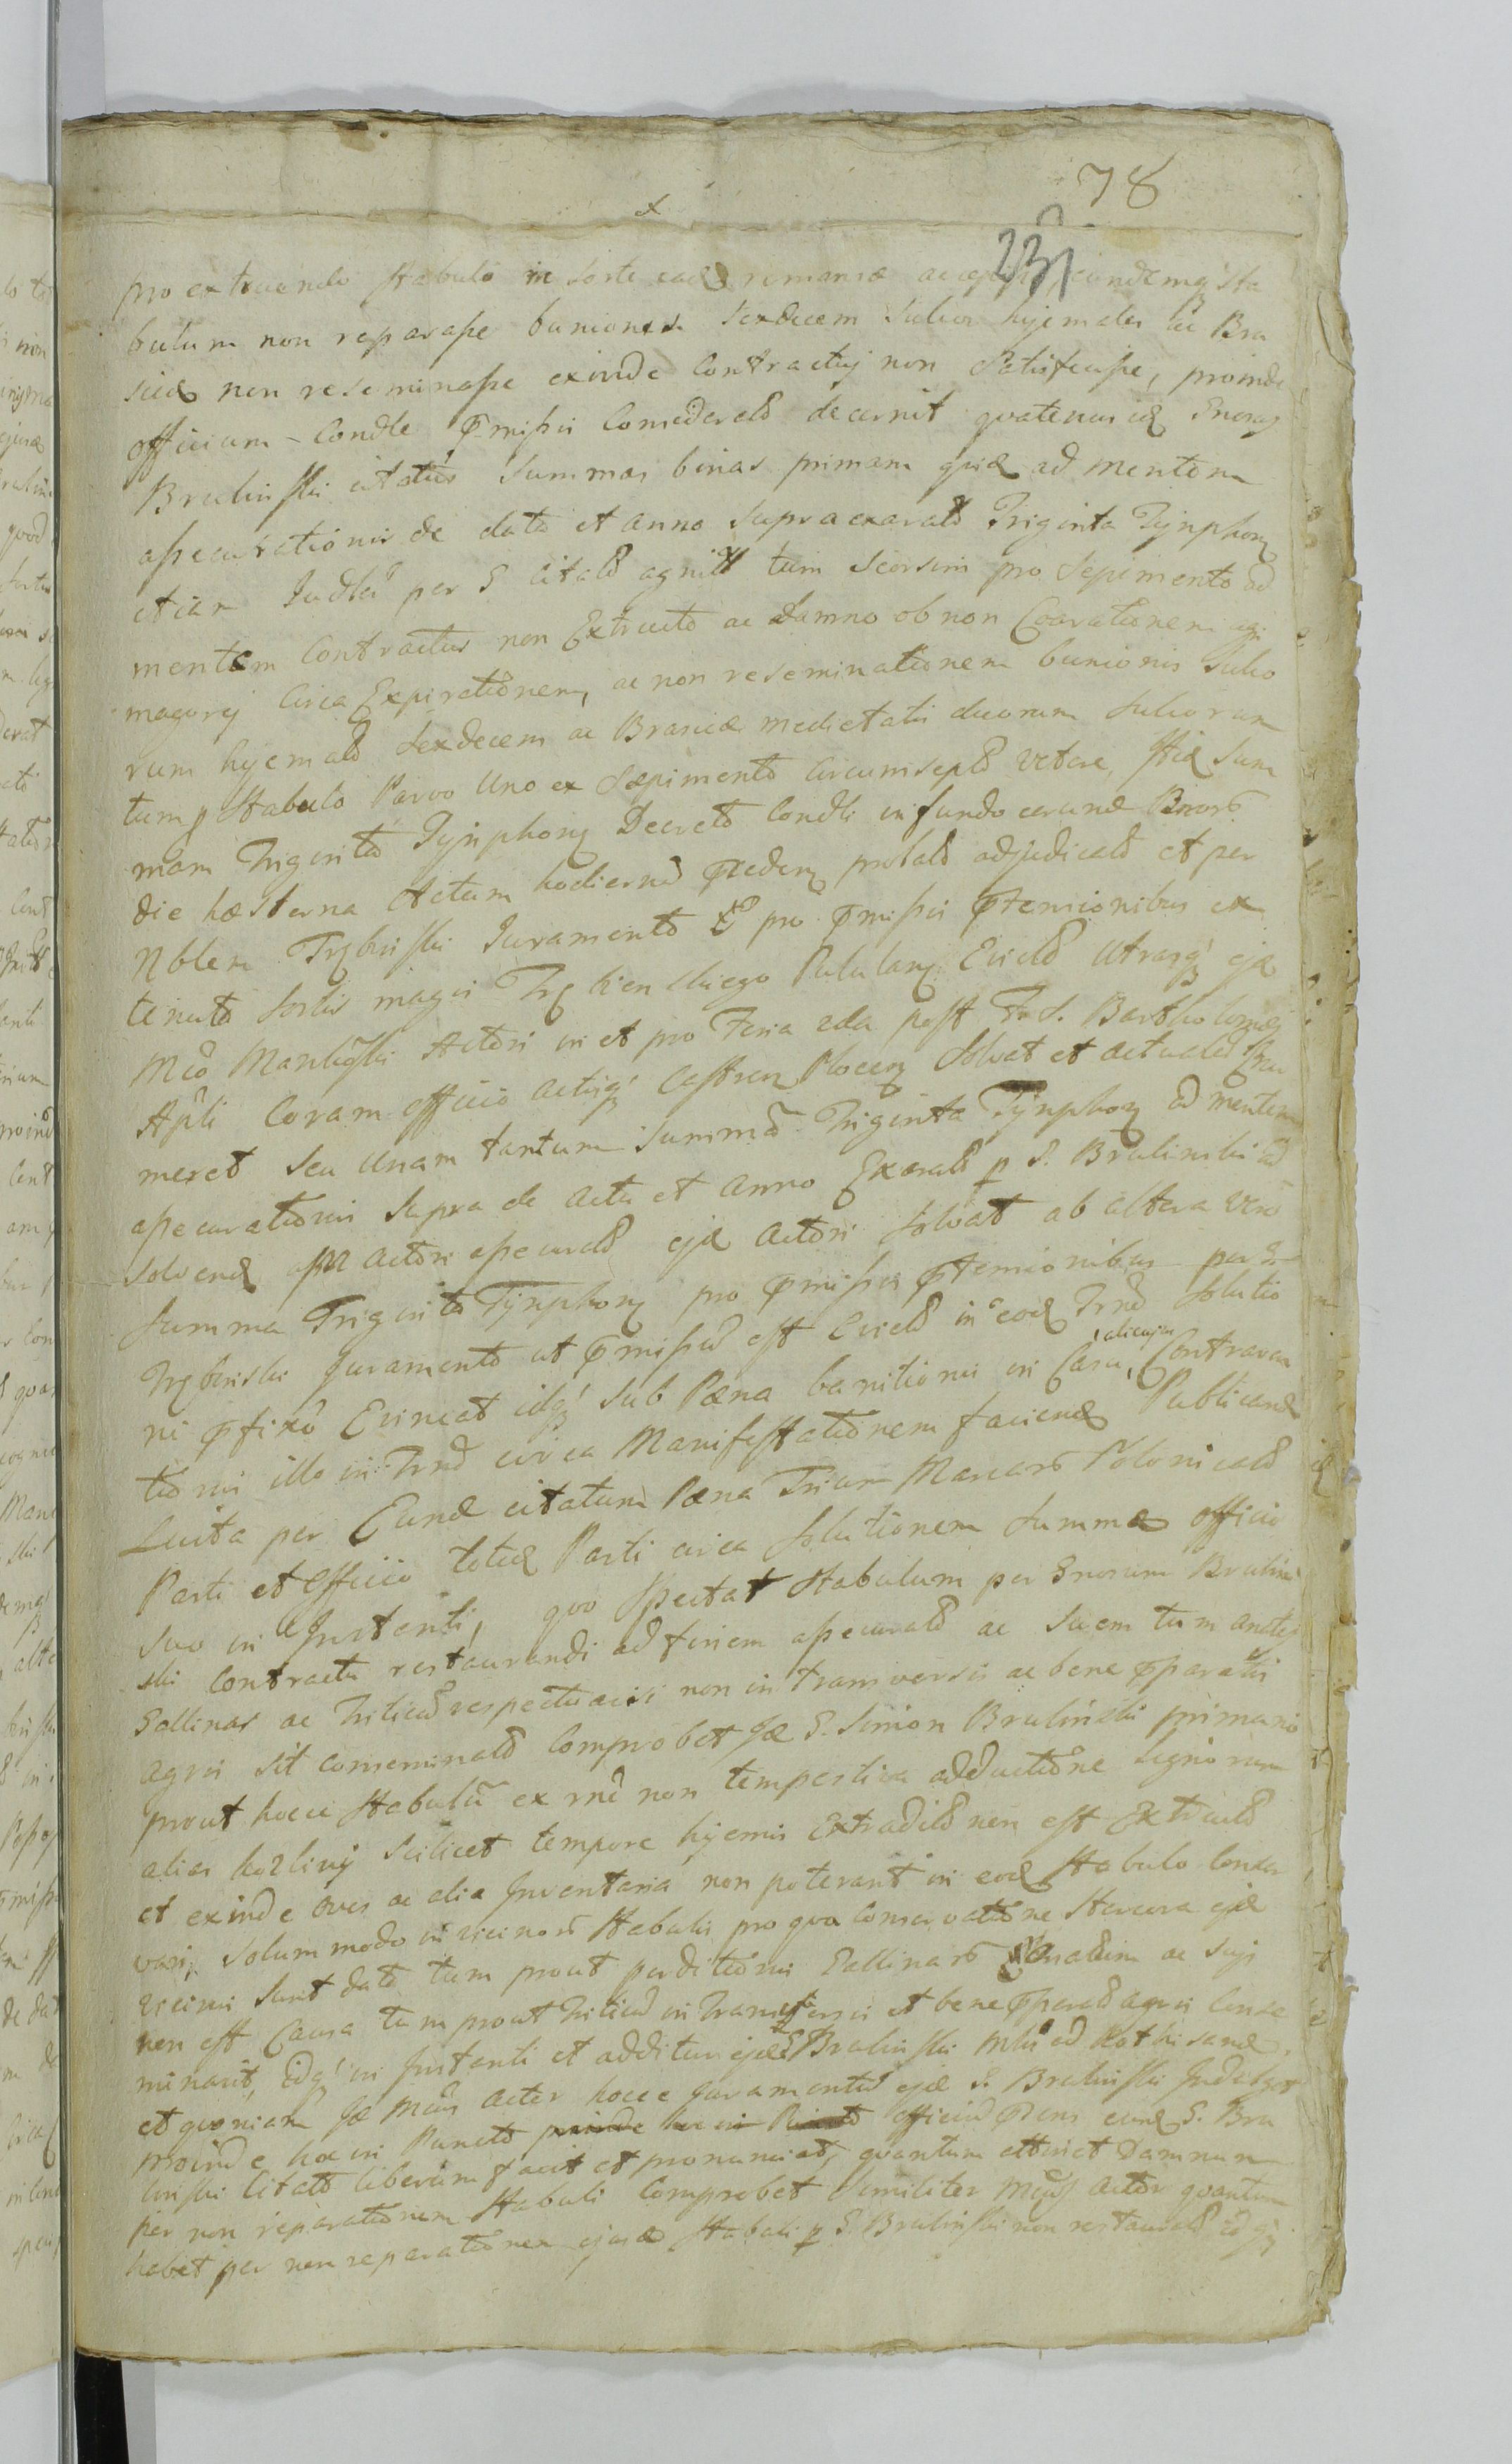 78
231
pro extruendo stabulo in sorte ead remansæ accepit, eundemq sta
bulum non reparasse buniones sexdecem sulcos hyemales ac Bra
sicæ non reseminasse exinde Contractuj non Satisfecisse, proinde
officium Condle præmissis Consideratis decernit quatenus id Gnosus
Brulinski citatus Summas binas primam quid ad mentem
assecurationis de data et anno supra exarato Triginta Tynphonq
etiam Judlr per G citatũ agnitã tum seorsim pro sepimento ad
mentem Contractus non Extructo ac damno ob non Coarationem agri
magoryj Circa Expirationem, ac non reseminationem bunionis sulco
rum hyemalũ sexdecem ac Brasicæ medietatis duorum sulcorum
tumq stabulo Parvo Uno ex Sæpimento Circumsepto vetere, Stiq Sum
mam Triginta Tynphonq Decreto Condli in fundo earund Bnorũ
die hæsterna Actum hodierno præced probatũ adjudicatũ et per
Nblem Trębinski Juramento pro præmissis prætensionibus ex
tenuta sortis magis Trębienskiego Evictũ Utrasq ejd
Mco Mankoski Actori in et pro Feria 2da post F. S. Bartholomæj
Apli Coram officio actisq Castren Plocen Solvat et actuali Enu
meret seu Unam tantum Summã Triginta Tynphonq ad mentem
assecurationis supra de actu et anno Exaratũ p G. Brulinski ad
solvend ipsi actori assecuratũ ejd actori solvat ab altera vero
Summa Triginta Tynphonq pro præmissis prætensionibus per G.
Trębinski Juramento ut præmissũ est Evictũ in eod Trno Solutio
ni præfixo Evincat idq sub Pæna banitionis in Casu alicujus Contraven
tionis illo in Trno circa Manifestationem faciend Publicand
Luita per Eund citatum Pæna Trium Marcarũ Polonicaliũ
Parti et Officio totid Parti circa Solutionem Summæ officio
suo in Instanti, quo spectat Stabulum per Gnosum Brulin
ski Contractu restaurandi ad finem assecuratũ ac Suem tum
Gallinas ac Triticũ respectu non in transversis ac bene præparatis
agris sit conseminatũ Comprobet Id G. Simon Brulinski primario
prout hocce Stabulũ ex rne non tempestiva adductione lignorum
alias kozliny scilicet tempore hyemis Extraditũ non est Extructũ
et exinde oves ac alia Inventaria non poterant in eod Stabulo conser
vari, solum modo in vicinorũ Stabulis pro qua Conservatione stercora ejd
vicinis sunt data tum prout perditionis Gallinarũ ac suis
non est Causa tum prout Triticũ in transversis et bene præparatis agris conse
minavit, idq in Instanti et additur ejd G Brulinski Mls ad Rothisand.
et quoniam Id Mcus Acter hocce Juramentũ ejd G. Brulinski Indulget
proinde hoc in Puncto officiũ præsens eund G. Bru
linski Citatũ liberum facit et pronunciat, quantum attinet Damnum
per non reparationem Stabuli Comprobet similiter Mcus Actor quantum
habet per non reparationem ejusd Stabuli p G. Brulinski non restauratũ idq